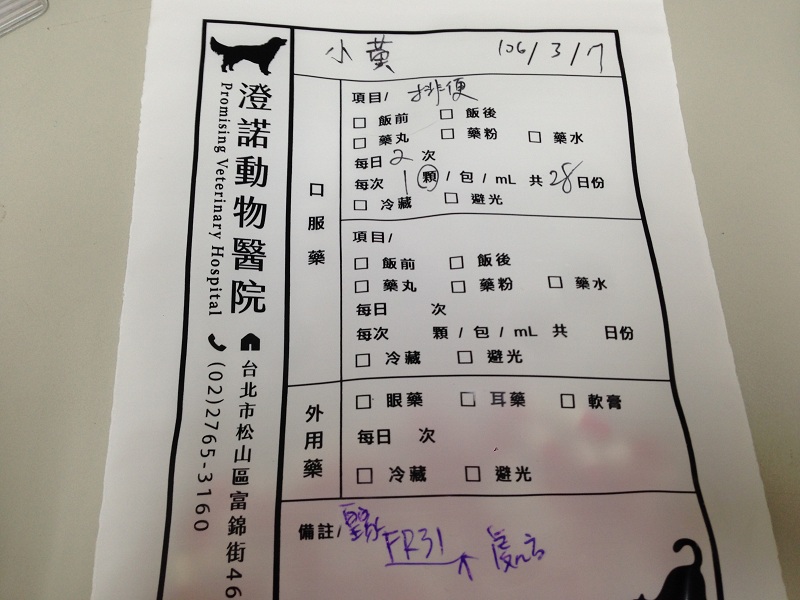 澄諾動物醫院
Promising Veterinary Hospital
台北市松山區富錦街46
(02)2765-3160
小黃 106/3/17
口服藥
項目/ 排便
□ 飯前 □ 飯後
□ 藥丸 □ 藥粉 □ 藥水
每日 2 次
每次 1 顆 / 包 / mL 共 28 日份
□ 冷藏 □ 避光
項目/
□ 飯前 □ 飯後
□ 藥丸 □ 藥粉 □ 藥水
每日 次
每次 顆 / 包 / mL 共 日份
□ 冷藏 □ 避光
外用藥
□ 眼藥 □ 耳藥 □ 軟膏
每日 次
□ 冷藏 □ 避光
備註/
FR31